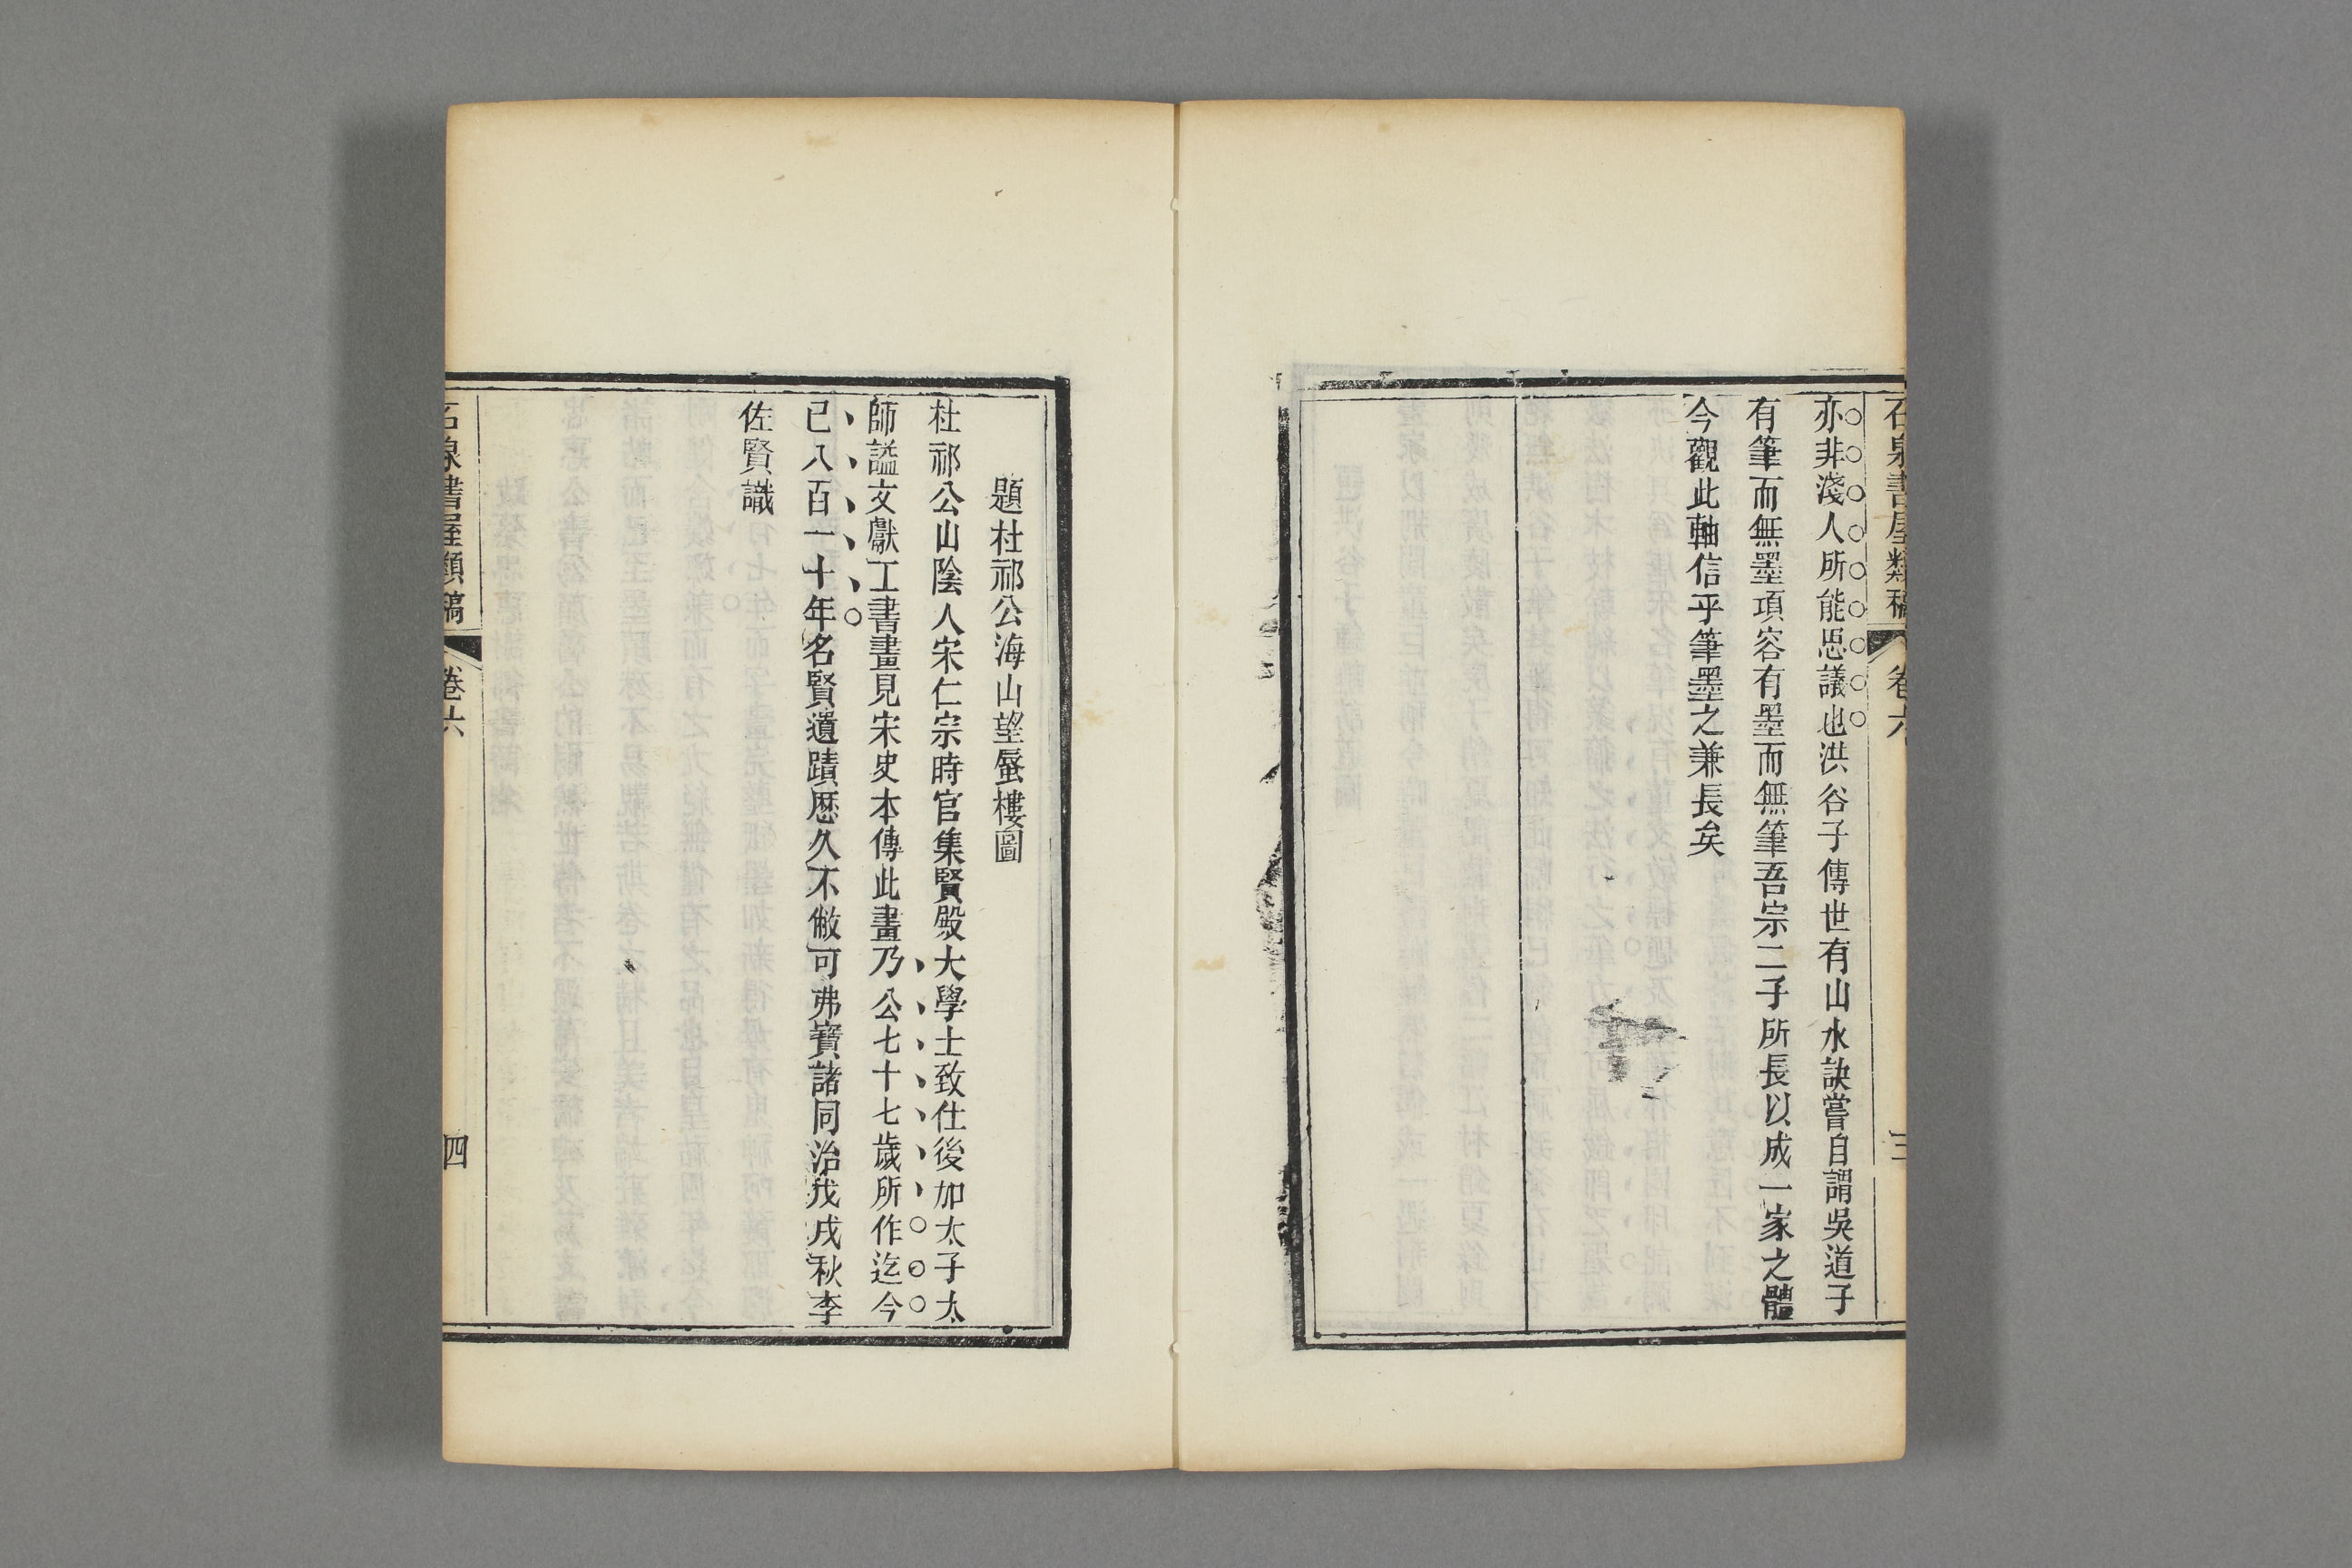 石泉書屋類稿 卷六 三
亦非淺人所能思議也洪谷子傳世有山水訣嘗自謂吳道子
有筆而無墨項容有墨而無筆吾宗二子所長以成一家之體
今觀此軸信乎筆墨之兼長矣
題杜祁公海山望蜃樓圖
杜祁公山陰人宋仁宗時官集賢殿大學士致仕後加太子太
師諡文獻工書畫見宋史本傳此畫乃公七十七歲所作迄今
已八百一十年名賢遺蹟歷久不敝可弗寶諸同治戊戌秋李
佐賢識
石泉書屋類稿 卷六 四